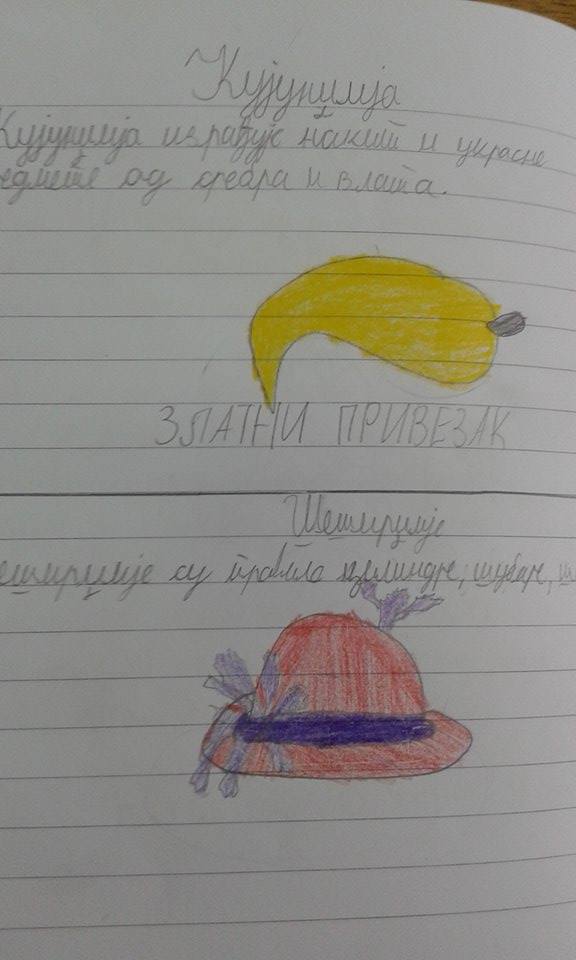 Кујунџија
Кујунџија израђује накит и украсне
едмете од сребра и злата.
ЗЛАТНИ ПРИВЕЗАК
Шеширџије
еширџије су цилиндре, шубаре,